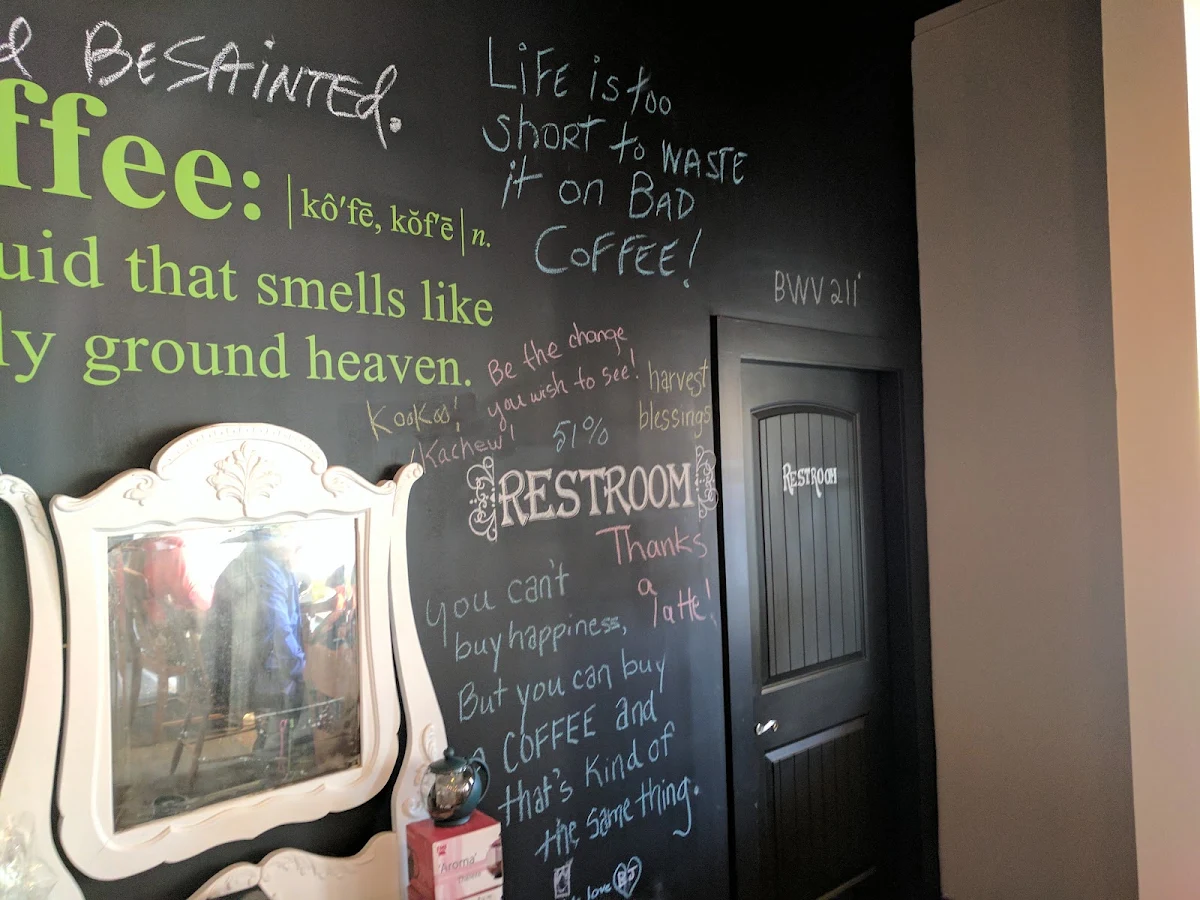 d BESAINTED.
ffee: |kô′fē, kŏf′ē| n.
uid that smells like
ly ground heaven.
LiFE is too
short to WASTE
it on BAD
CoFFEE!
BWV 211
Be the change
you wish to see!
harvest
blessings
KooKoo!
Kachew!
51%
RESTROOM
RESTROOM
Thanks
a
latte!
you can't
buy happiness,
But you can buy
COFFEE and
that's kind of
the same thing.
love BJ
'Aroma'